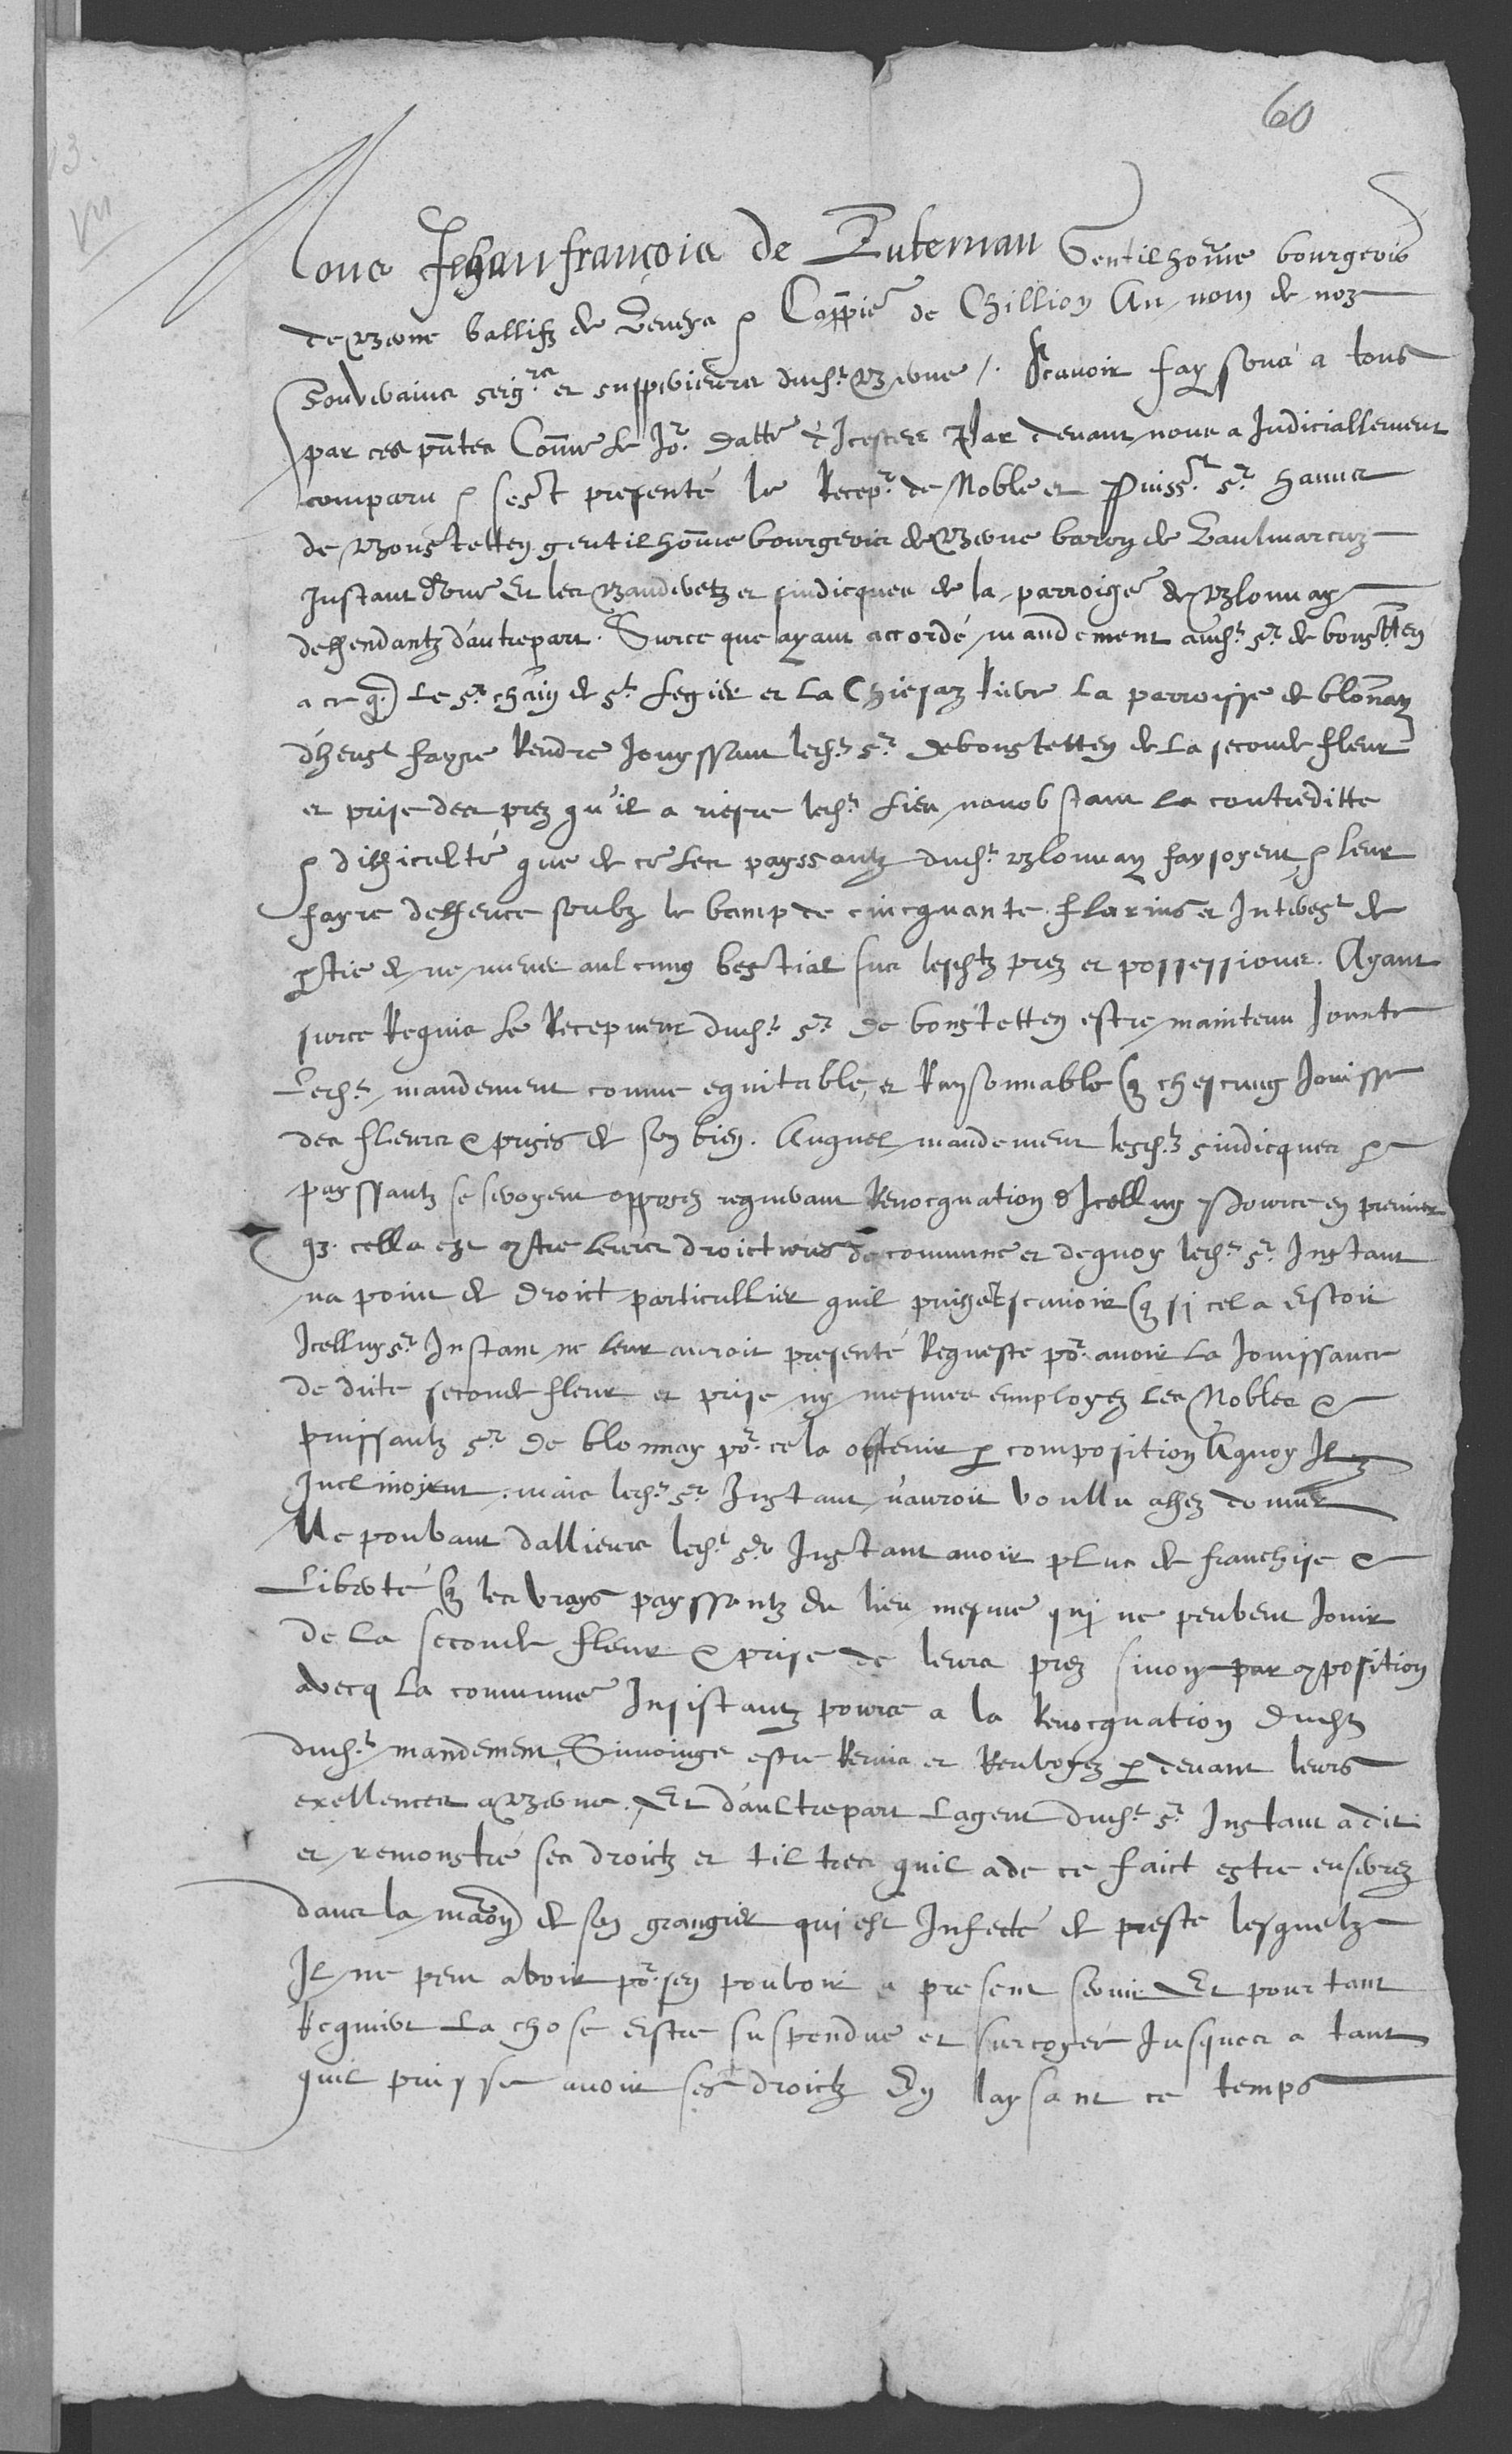 60
Nous Jehan françois de Luternau Gentilhome bourgeois
de Berne ballifz de Vevey & Cappne de Chillion Au nom de noz
Souverains seigrs et supperieurs dudt Berne /. Scavoir faysons a tous
par ces pntes Come le Jor datte d'Icestes Par devant nous a Judiciallement
comparu & sest presenté le Recepr de Noble et Puisst sr hanns
de Bonstetten gentilhome bourgeois de Berne baron de Vaulmarcuz
Instant d'une Et les Banderetz et sindicques de la parroige de Blonnay
deffendantz d'autrepart. Surce que ayant accordé mandement audt sr de bonstten
a ce q le sr chain de st Legier et La Chiesaz Riere La parroisse de blonay
d'heust fayre Rendre Jouyssant ledt sr de bonstetten de La seconde fleur
et prise des prez qu'il a riesre ledt Lieu nonobstant La contreditte
& difficulté que de ce Les payssantz dudt Blonnay faysoyent & leur
fayre deffence soubz le bamp de cincquante florins et Interest de
ptie de ne mener aulcung bestial sus lesdtz prez et possessions. Ayant
surce Requis Le Recepveur dudt sr de bonstetten estre maintenu Jouxte
Ledt mandement comme equitable, et Raysonnable q chescung Jouisse
des fleurs & prises de son bien. Auquel mandement lesdtz sindicques &
payssantz se seroyent opposez requerant Revocquation d'Icelluy Pource en premier
q. cella est 9tre Leurs droictures de commune et dequoy ledt sr Instant
na point de droict particullier quil puisse scavoir q si cela Estoit
Icelluy sr Instant ne leur auroit presenté Requeste por avoir La Jouissance
de dicte seconde fleur et prise ny mesmes employez Les Nobles &
puissantz srs de blonnay por cela obtenir p composition Aquoy Ilz
Inclinoyent. mais ledt sr Instant n'auroit voullu assez donner
Ne pouvant dallieurs ledt sr Instant avoir plus de franchise &
Liberté q les vrays payssantz du lieu mesme qui ne peuvent Jouir
de La seconde fleur & prise de leurs prez sinon par 9position
avecq La commune Insistantz pource a la Revocquation dudt
dudt mandement, Sinoinge estre Remis et Renvoyez p devant leurs
exellences a Berne. Et d'aultrepart Lagent dudt sr Instant a dit
et remonstré ses droictz et tiltres quil a de ce faict estre enserrez
dans la maon de son grangier qui est Infecté de peste lesquelz
Il ne peut avoir por sen pouvoir a present servir Et pourtant
Requiert La chose Estre suspendue et surcoyée Jusques a tant
quil puisse avoir ses droictz En laysant ce temps